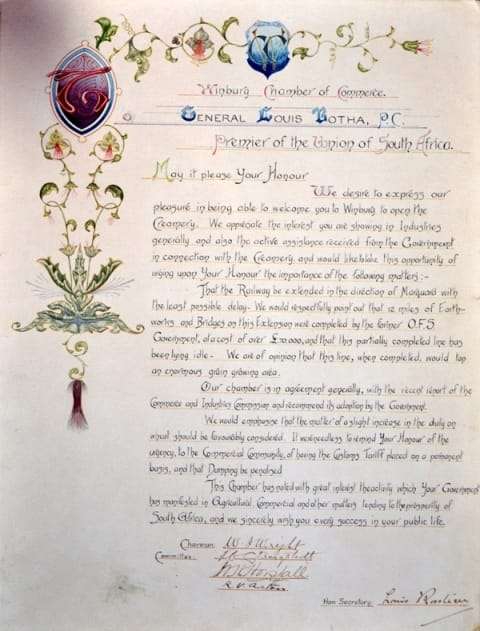 Winburg Chamber of Commerce.
To General Louis Botha, P.C.
Premier of the Union of South Africa.
May it please Your Honour
We desire to express our
pleasure in being able to welcome you to Winburg to open the
Creamery. We appreciate the interest you are showing in Industries
generally and also the active assistance received from the Government
in connection with the Creamery, and would like to take this opportunity of
urging upon Your Honour the importance of the following matters:-
That the Railway be extended in the direction of Marquard with
the least possible delay. We would respectfully point out that 12 miles of Earth-
works and Bridges on this Extension were completed by the former O.F.S
Government, at a cost of over £70,000, and that this partially completed line has
been lying idle. We are of opinion that this line, when completed, would tap
an enormous grain growing area.
Our chamber is in agreement generally, with the recent report of the
Commerce and Industries Commission and recommend its adoption by the Government.
We would emphasise that the matter of a slight increase in the duty on
wheat should be favourably considered. It were needless to remind Your Honour of the
urgency, to the Commercial Community, of having the Customs Tariff placed on a permanent
basis, and that Dumping be penalised
This Chamber has noted with great interest the activity which Your Government
has manifested in Agricultural Commercial and other matters tending to the prosperity of
South Africa, and we sincerely wish you every success in your public life.
Chairman
Committee
Hon Secretary: Louis